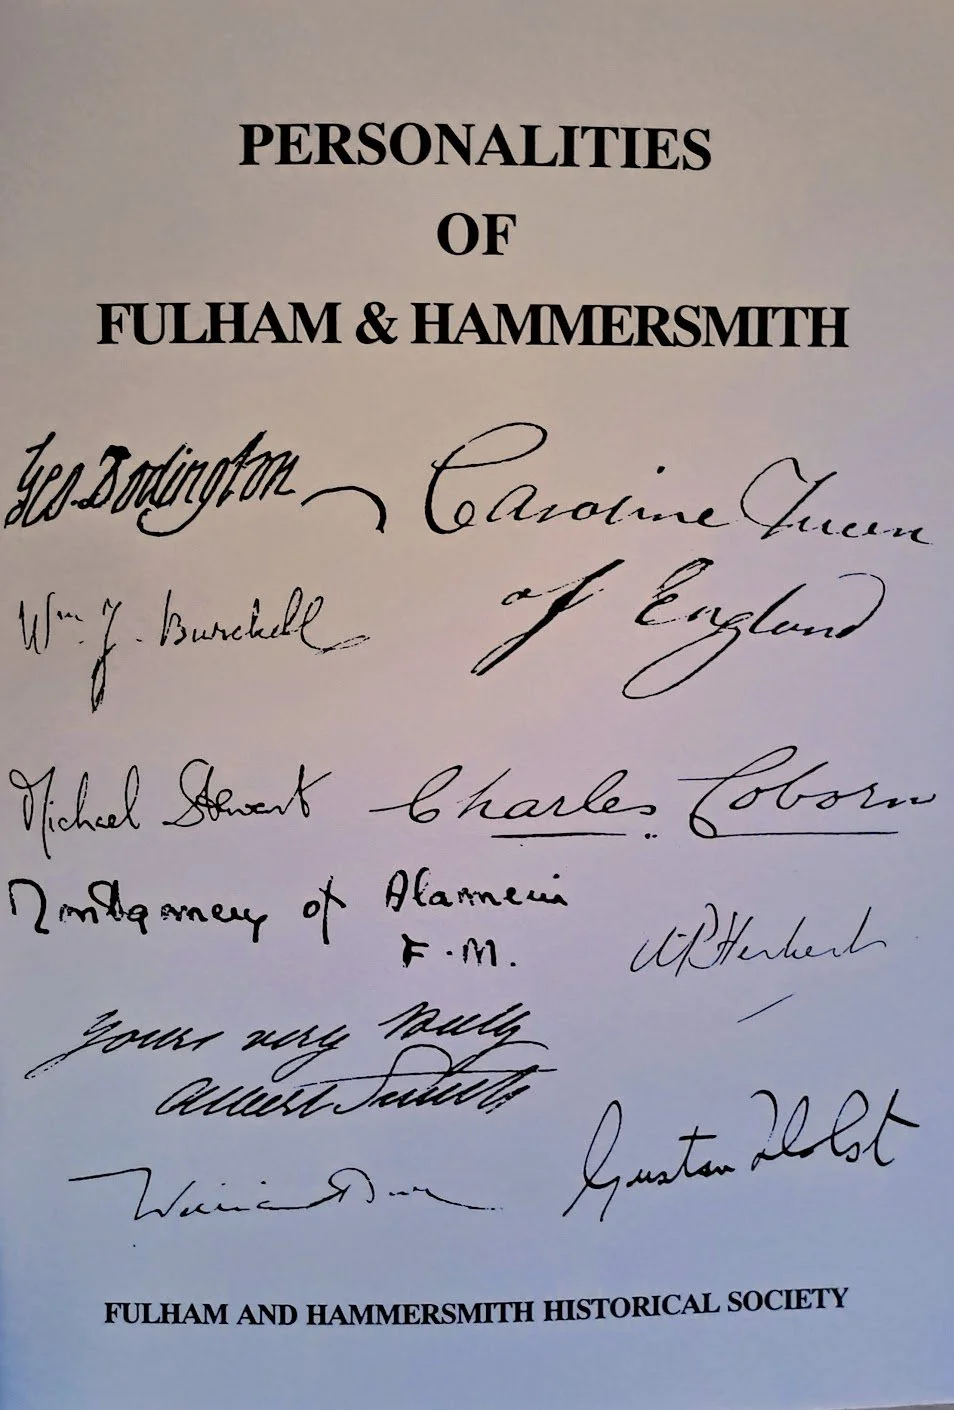 PERSONALITIES
OF
FULHAM & HAMMERSMITH
Geo. Dodington
Caroline Queen
of England
Wm. J. Burchell
Michael Stewart
Charles Coborn
Montgomery of Alamein
F.M.
A P Herbert
Yours very truly
Albert Smith
William
Gustav Holst
FULHAM AND HAMMERSMITH HISTORICAL SOCIETY